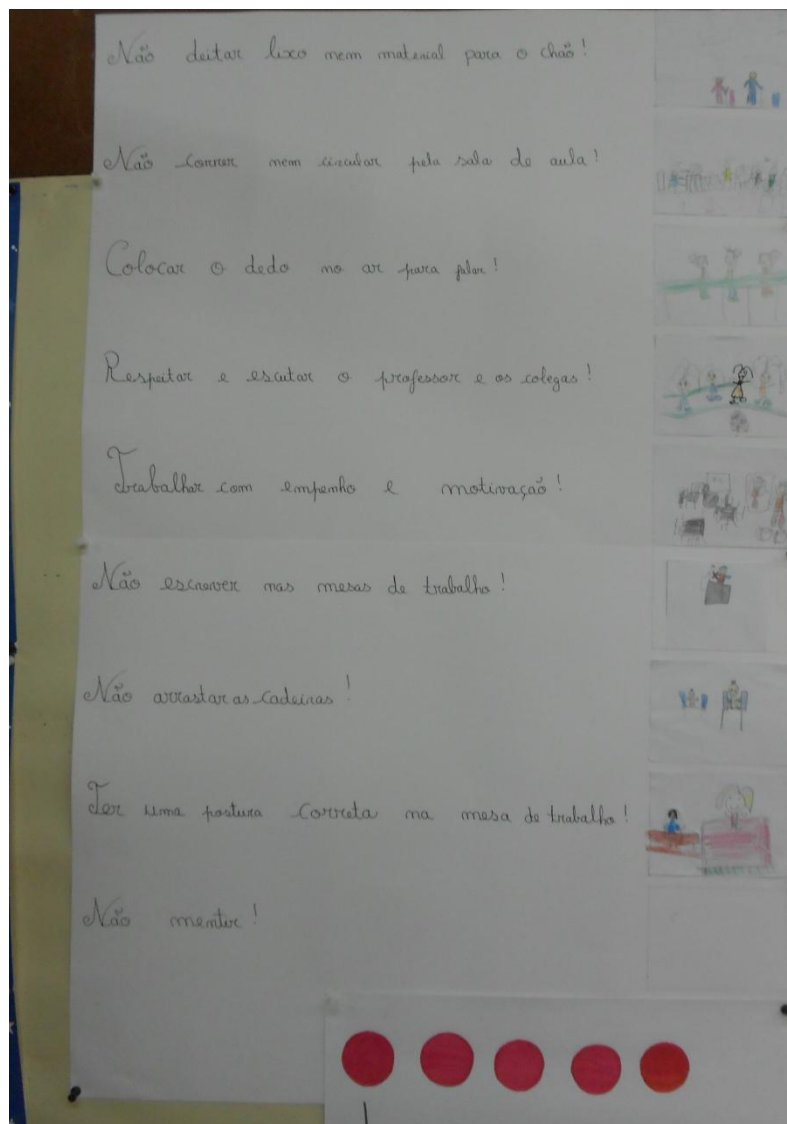 Não deitar lixo nem material para o chão!
Não correr nem circular pela sala de aula!
Colocar o dedo no ar para falar!
Respeitar e escutar o professor e os colegas!
Trabalhar com empenho e motivação!
Não escrever nas mesas de trabalho!
Não arrastar as cadeiras!
Ter uma postura correta na mesa de trabalho!
Não mentir!